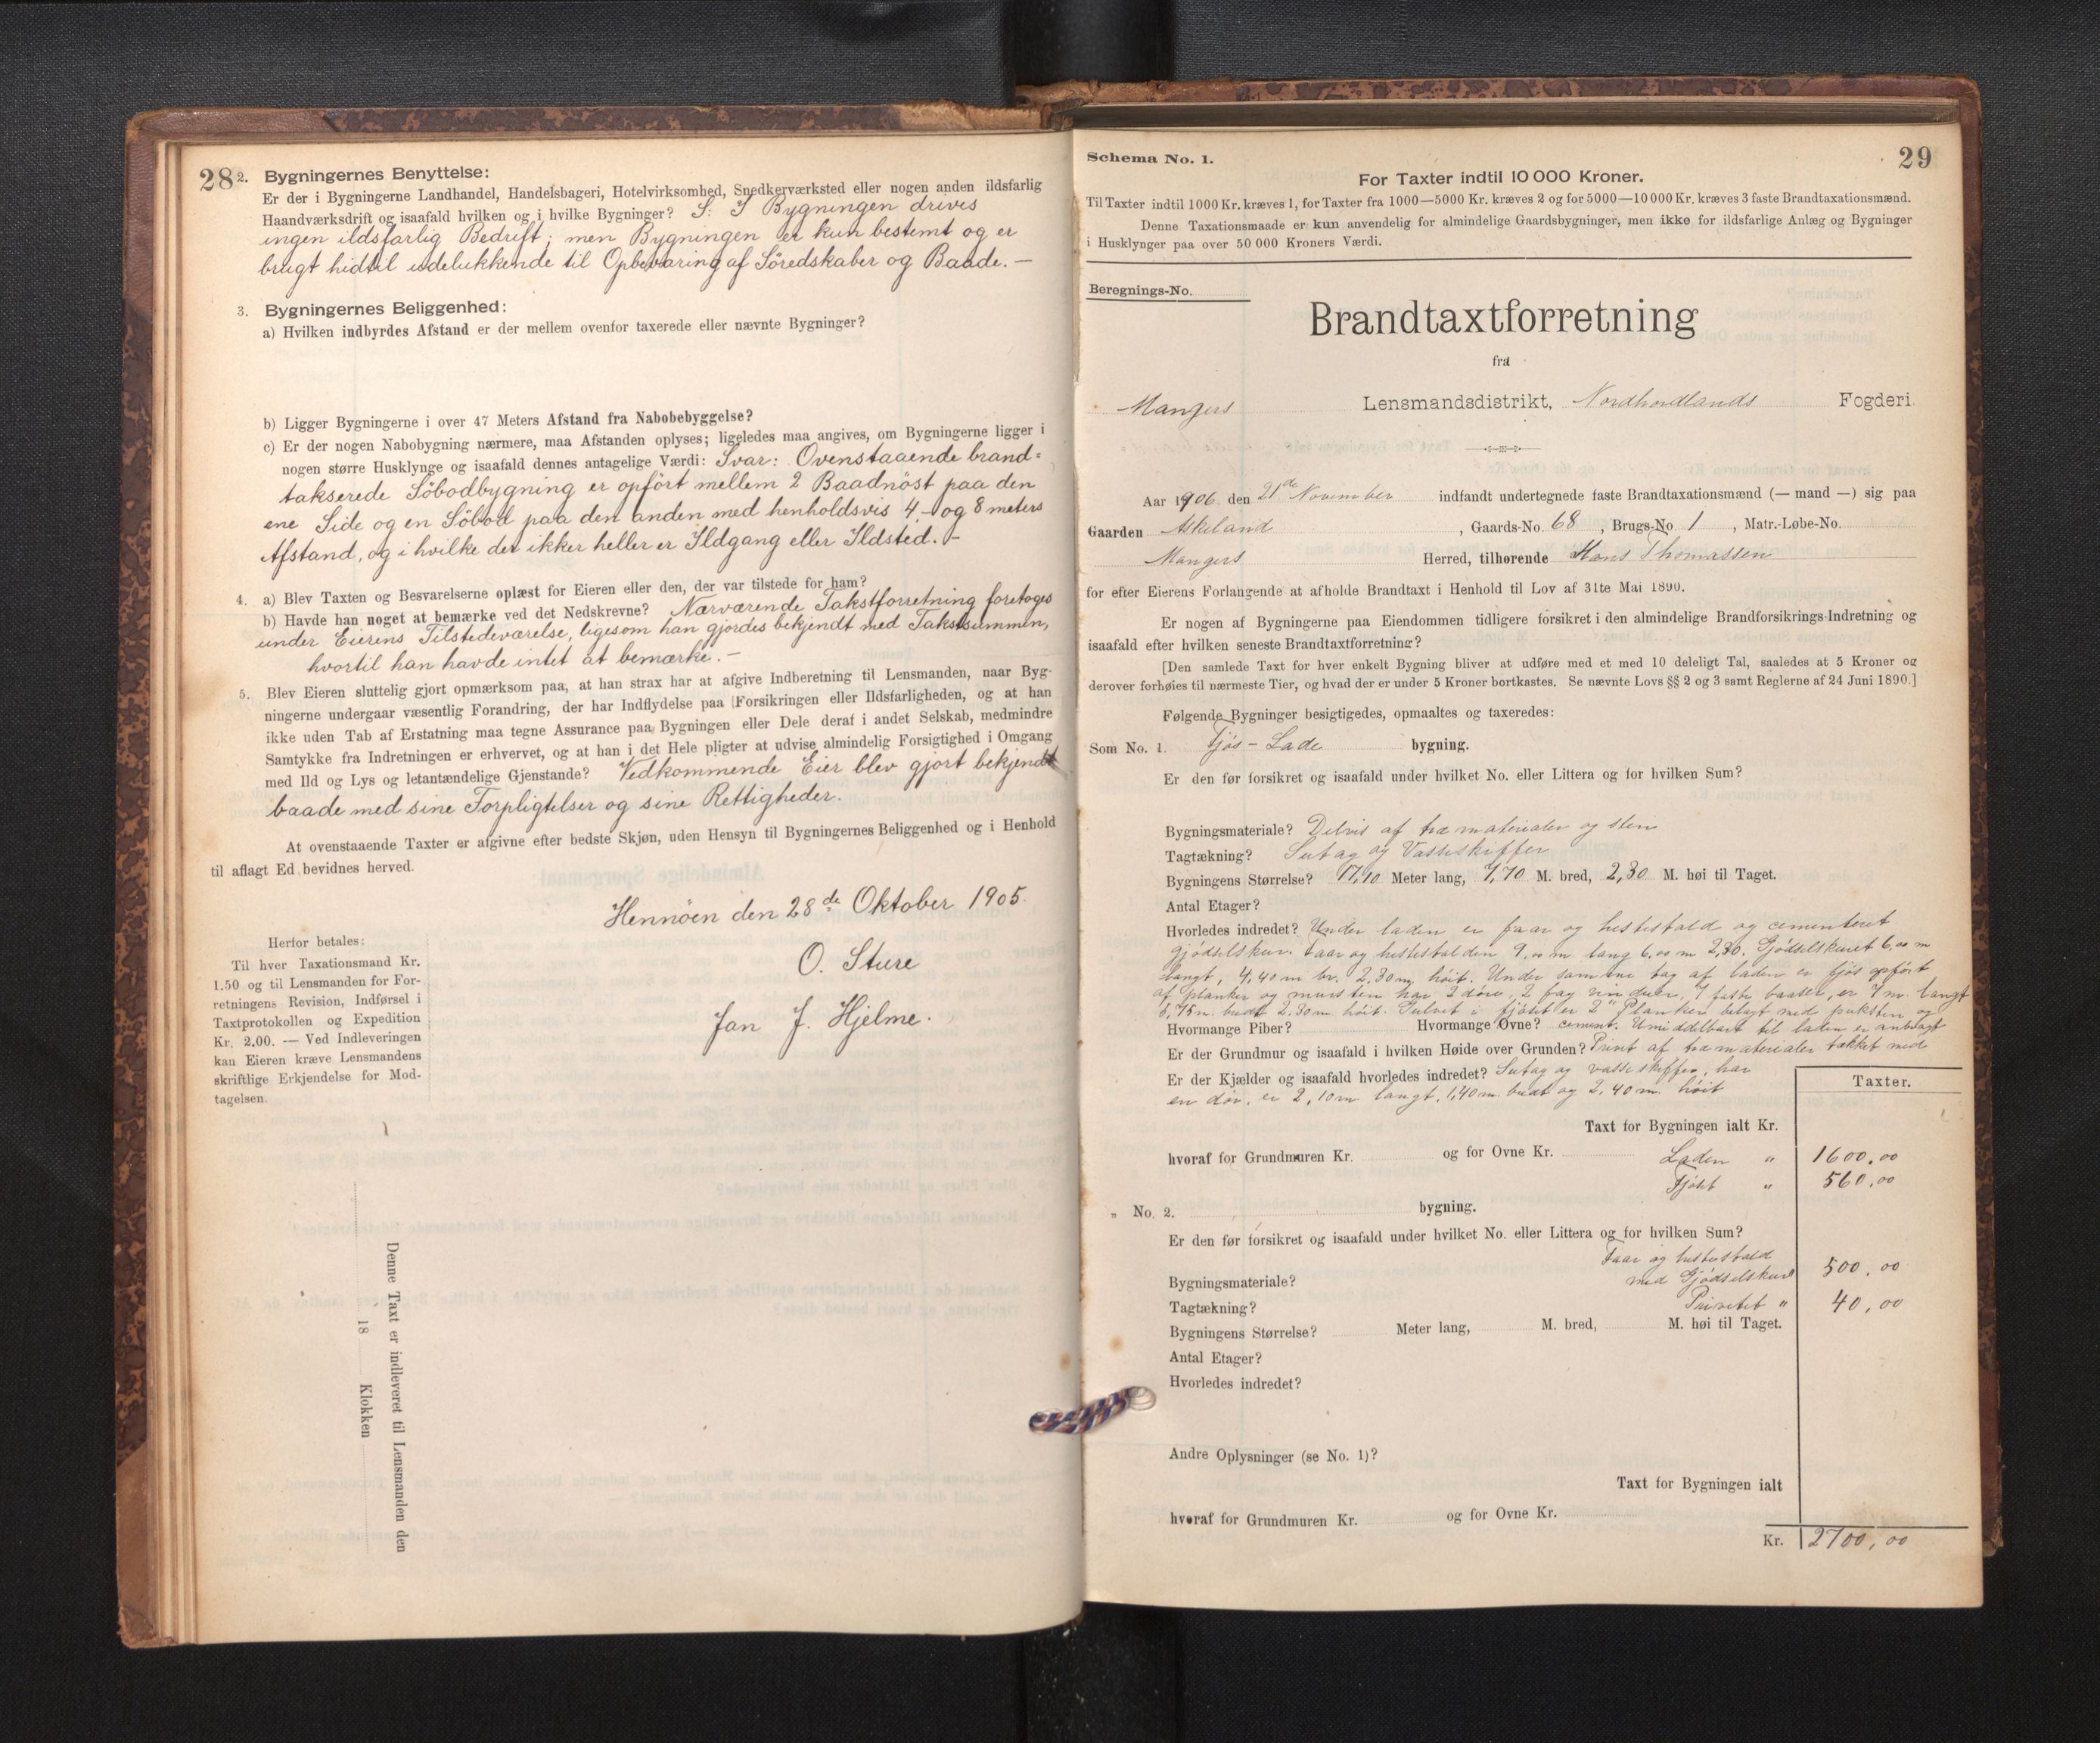 28
2. Bygningernes Benyttelse:
Er der i Bygningerne Landhandel, Handelsbageri, Hotelvirksomhed, Snedkerværksted eller nogen anden ildsfarlig
Haandværksdrift og isaafald hvilken og i hvilke Bygninger? S: I Bygningen drives
ingen ildsfarlig Bedrift; men Bygningen er kun bestemt og er
brugt hidtil udelukkende til Opbevaring af Söredskaber og Baade. —
3. Bygningernes Beliggenhed:
a) Hvilken indbyrdes Afstand er der mellem ovenfor taxerede eller nævnte Bygninger?
b) Ligger Bygningerne i over 47 Meters Afstand fra Nabobebyggelse?
c) Er der nogen Nabobygning nærmere, maa Afstanden oplyses; ligeledes maa angives, om Bygningerne ligger i
nogen større Husklynge og isaafald dennes antagelige Værdi: Svar: Ovenstaaende brand=
takserede Söbodbygning er opfört mellem 2 Baadnöst paa den
ene Side og en Söbod paa den anden med henholdsvis 4,- og 8 meters
Afstand, og i hvilke der ikker heller er Ildgang eller Ildsted. —
4. a) Blev Taxten og Besvarelserne oplæst for Eieren eller den, der var tilstede for ham?
b) Havde han noget at bemærke ved det Nedskrevne? Nærværende Takstforretning foretoges
under Eierens Tilstedeværelse, ligesom han gjordes bekjendt med Takstsummen,
hvortil han havde intet at bemærke. —
5. Blev Eieren sluttelig gjort opmærksom paa, at han strax har at afgive Indberetning til Lensmanden, naar Byg-
ningerne undergaar væsentlig Forandring, der har Indflydelse paa Forsikringen eller Ildsfarligheden, og at han
ikke uden Tab af Erstatning maa tegne Assurance paa Bygningen eller Dele deraf i andet Selskab, medmindre
Samtykke fra Indretningen er erhvervet, og at han i det Hele pligter at udvise almindelig Forsigtighed i Omgang
med Ild og Lys og letantændelige Gjenstande? Vedkommende Eier blev gjort bekjendt
baade med sine Forpligtelser og sine Rettigheder.
At ovenstaaende Taxter er afgivne efter bedste Skjøn, uden Hensyn til Bygningernes Beliggenhed og i Henhold
til aflagt Ed bevidnes herved.
Hennöen den 28de Oktober 1905.
O. Sture
Jan J. Hjelme.
Herfor betales:
Til hver Taxationsmand Kr.
1.50 og til Lensmanden for For-
retningens Revision, Indførsel i
Taxtprotokollen og Expedition
Kr. 2.00. — Ved Indleveringen
kan Eieren kræve Lensmandens
skriftlige Erkjendelse for Mod-
tagelsen.
Denne Taxt er indleveret til Lensmanden den
18 Klokken
29
Schema No. 1.
For Taxter indtil 10 000 Kroner.
Til Taxter indtil 1000 Kr. kræves 1, for Taxter fra 1000—5000 Kr. kræves 2 og for 5000—10 000 Kr. kræves 3 faste Brandtaxationsmænd.
Denne Taxationsmaade er kun anvendelig for almindelige Gaardsbygninger, men ikke for ildsfarlige Anlæg og Bygninger
i Husklynger paa over 50 000 Kroners Værdi.
Beregnings-No.
Brandtaxtforretning
fra
Mangers Lensmandsdistrikt, Nordhordlands Fogderi.
Aar 1906 den 21de November indfandt undertegnede faste Brandtaxationsmænd (— mand —) sig paa
Gaarden Askeland, Gaards-No. 68, Brugs-No. 1, Matr.-Løbe-No.
Mangers Herred, tilhørende Hans Thomassen
for efter Eierens Forlangende at afholde Brandtaxt i Henhold til Lov af 31te Mai 1890.
Er nogen af Bygningerne paa Eiendommen tidligere forsikret i den almindelige Brandforsikrings-Indretning og
isaafald efter hvilken seneste Brandtaxtforretning?
[Den samlede Taxt for hver enkelt Bygning bliver at udføre med et med 10 deleligt Tal, saaledes at 5 Kroner og
derover forhøies til nærmeste Tier, og hvad der er under 5 Kroner bortkastes. Se nævnte Lovs §§ 2 og 3 samt Reglerne af 24 Juni 1890.]
Følgende Bygninger besigtigedes, opmaaltes og taxeredes:
Som No. 1. Fjøs - Lade bygning.
Er den før forsikret og isaafald under hvilket No. eller Littera og for hvilken Sum?
Bygningsmateriale? Delvis af træmaterialer og sten
Tagtækning? Sutag og Vasseskiffer
Bygningens Størrelse? 17,10 Meter lang, 7,70 M. bred, 2,30 M. høi til Taget.
Antal Etager?
Hvorledes indredet? Under laden er faar og hestestald og cementeret
gjødselskur. Faar og hestestalden 9.00 m lang 6.00 m 2,30. Gjødselskuret 6,00 m
langt, 4,40 m br. 2,30 m høit. Under samme tag af laden er fjøs opført
af planker og mursten har 2 døre, 2 fag vinduer, 7 faste baaser, er 7 m. langt
6,75 m. bredt 2,30 m. høit. Gulvet i fjøset er 2" Planker belagt med puksten og
Hvormange Piber? Hvormange Ovne? cement. Umiddelbart til laden er anbragt
Er der Grundmur og isaafald i hvilken Høide over Grunden? Privet af træmaterialer tækket med
Er der Kjælder og isaafald hvorledes indredet? Sutag og vasseskiffer, har
en dør, er 2,10 m langt, 1,40 m. bredt og 2,40 m. høit
Taxter.
Taxt for Bygningen ialt Kr.
hvoraf for Grundmuren Kr. og for Ovne Kr. Laden " 1600,00
Fjøset " 560,00
" No. 2. bygning.
Er den før forsikret og isaafald under hvilket No. eller Littera og for hvilken Sum?
Faar og hestestald
Bygningsmateriale? med Gjødselskur 500,00
Tagtækning? Privetet " 40,00
Bygningens Størrelse? Meter lang, M. bred, M. høi til Taget.
Antal Etager?
Hvorledes indredet?
Andre Oplysninger (se No. 1)?
Taxt for Bygningen ialt
hvoraf for Grundmuren Kr. og for Ovne Kr.
Kr. 2700,00